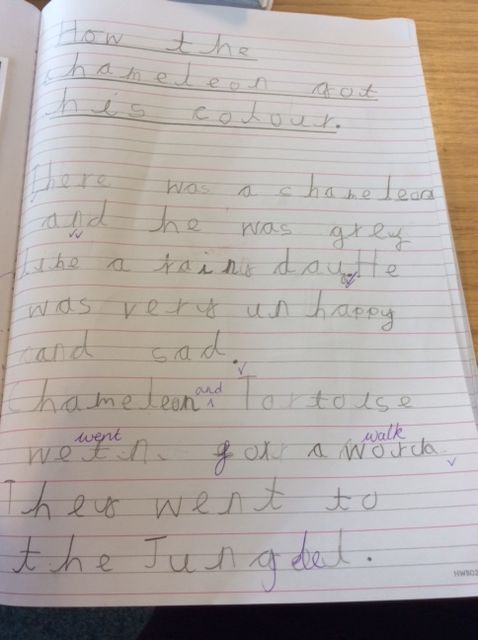 How the
chameleon got
his colour.
There was a chameleon
and he was grey
like a rainy day. He
was very unhappy
and sad.
Chameleon and Tortoise
went
walk
wetn. for a
They went to
the Jungdel.